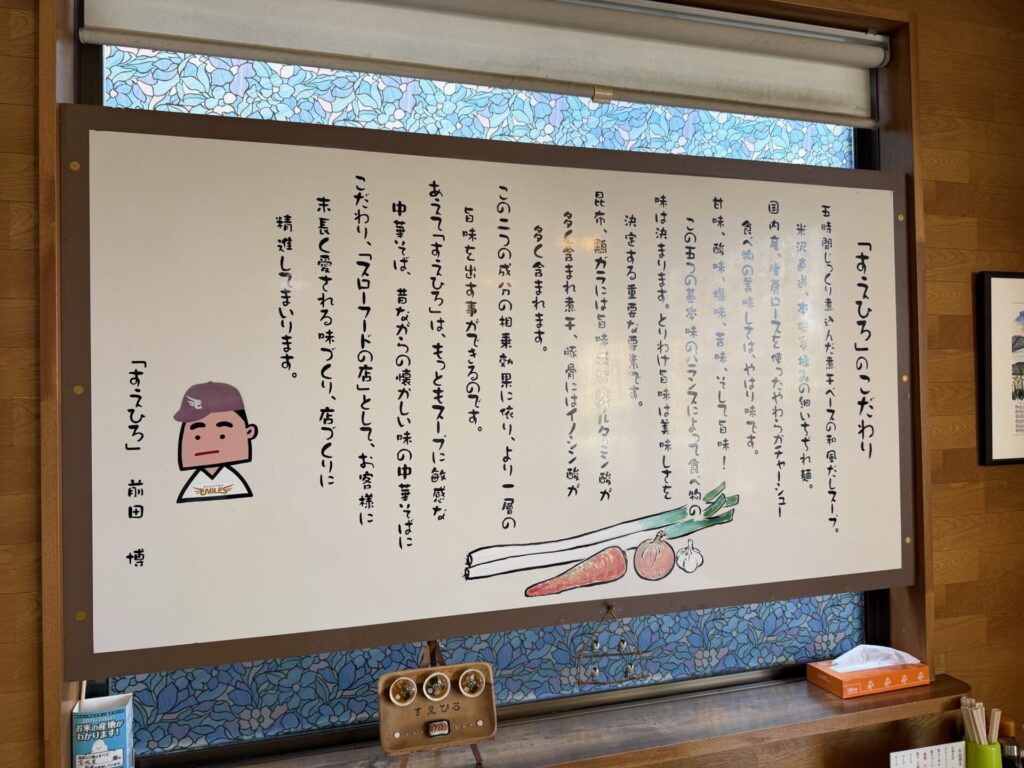 「すえひろ」のこだわり
五時間じっくり煮込んだ煮干ベースの和風だしスープ。
米沢直送、本加多極みの細いちぢれ麺。
国内産、生肩ロースを使ったやわらかチャーシュー
食べ物の美味しさは、やはり味です。
甘味、酸味、塩味、苦味、そして旨味！
この五つの基本味のバランスによって食べ物の
味は決まります。とりわけ旨味は美味しさを
決定する重要な要素です。
昆布、鶏ガラには旨味成分のグルタミン酸が
多く含まれ煮干、豚骨にはイノシン酸が
多く含まれます。
この二つの成分の相乗効果に依り、より一層の
旨味を出す事ができるのです。
あえて「すえひろ」は、もっともスープに敏感な
中華そば、昔ながらの懐かしい味の中華そばに
こだわり、「スローフードの店」として、お客様に
末長く愛される味づくり、店づくりに
精進してまいります。
「すえひろ」 前田 博
EAGLES
すえひろ
お米の産地が
わかります！